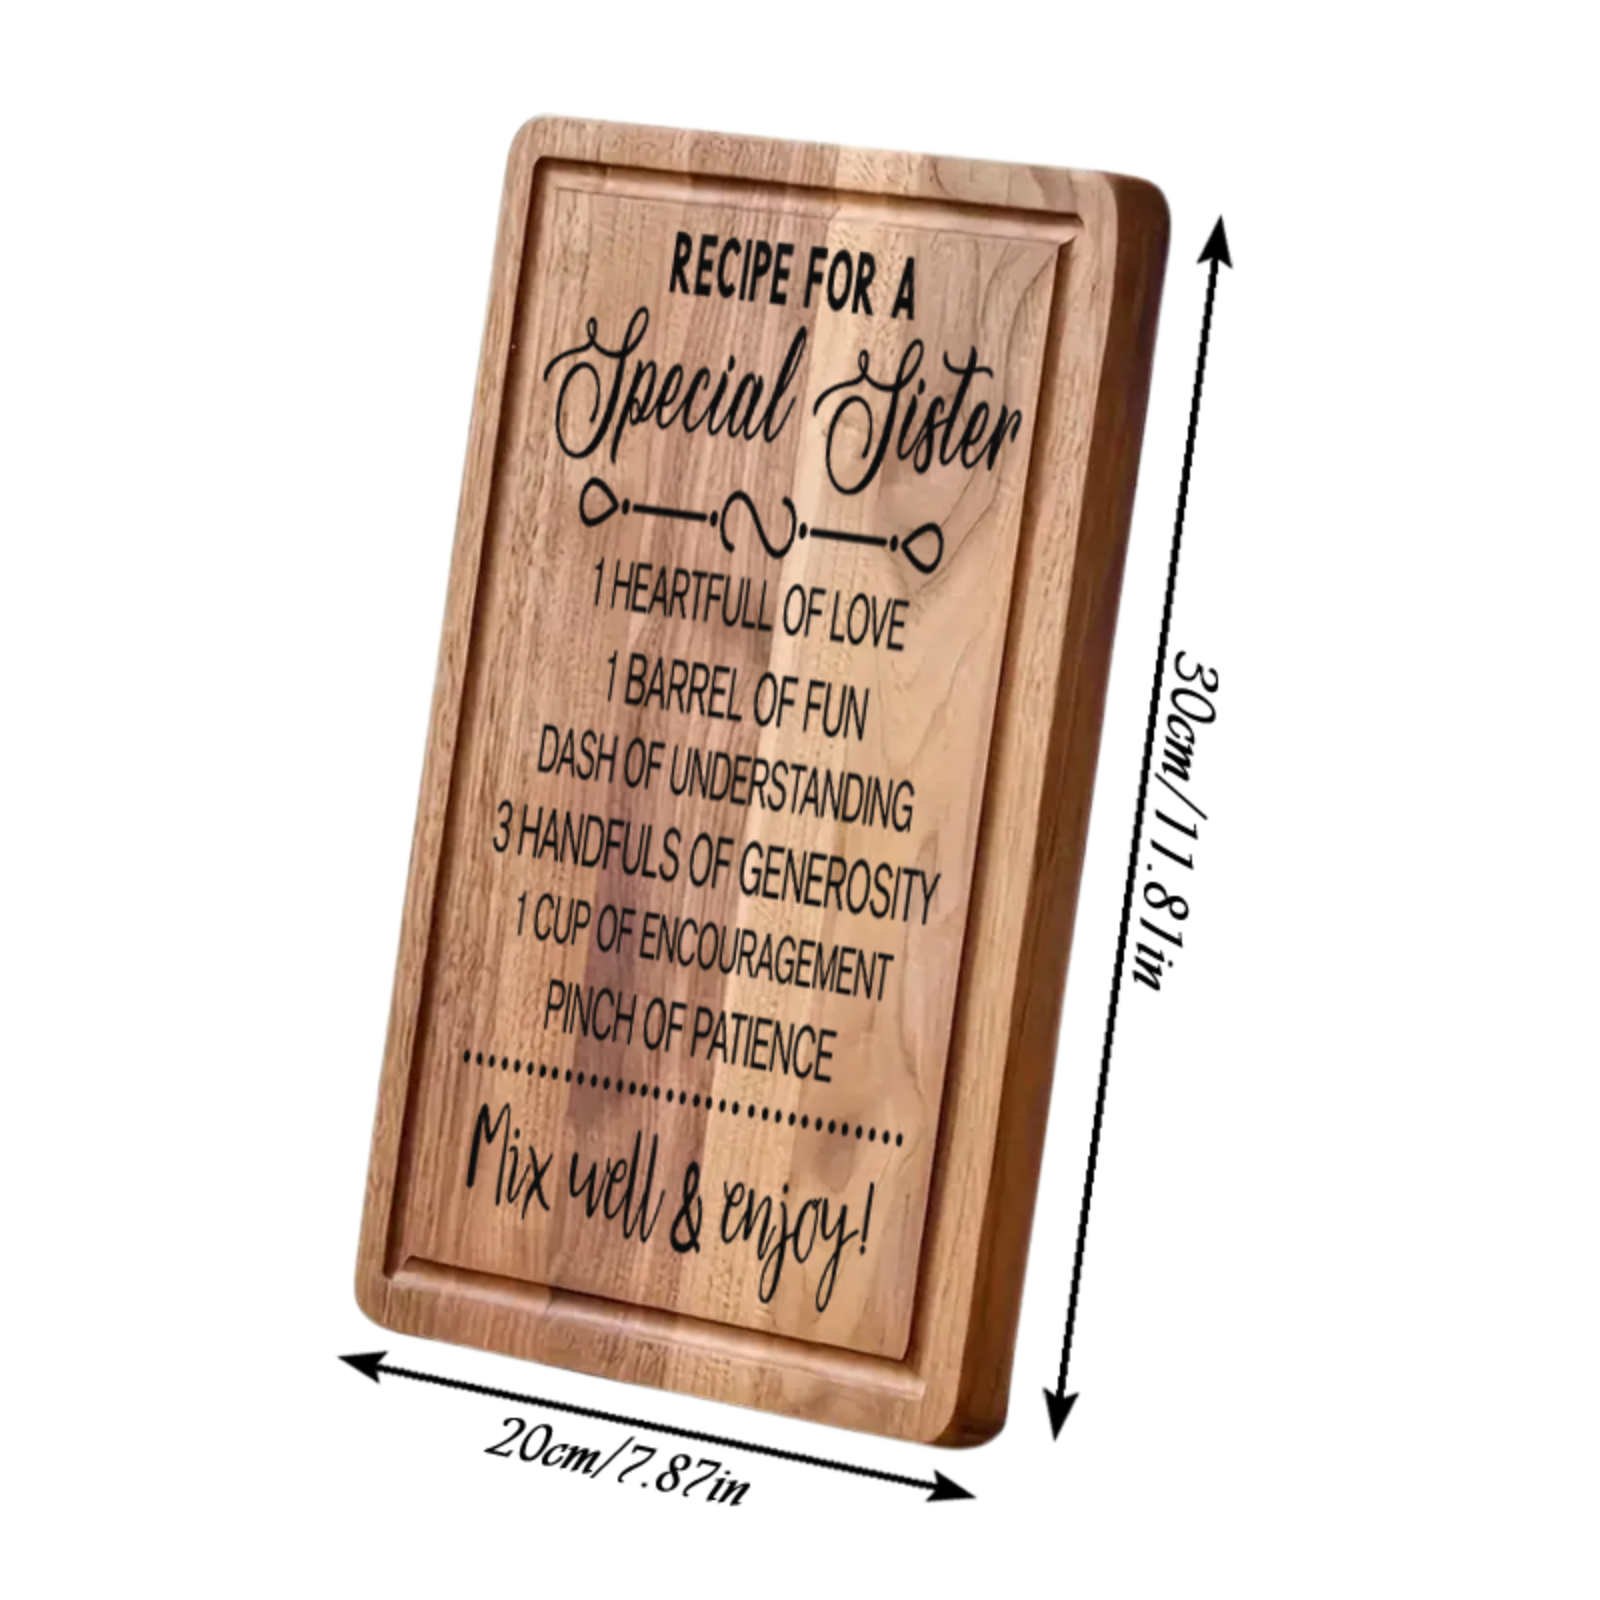 RECIPE FOR A
Special Sister
1 HEARTFULL OF LOVE
1 BARREL OF FUN
DASH OF UNDERSTANDING
3 HANDFULS OF GENEROSITY
1 CUP OF ENCOURAGEMENT
PINCH OF PATIENCE
Mix well & enjoy!
30cm/11.81in
20cm/7.87in